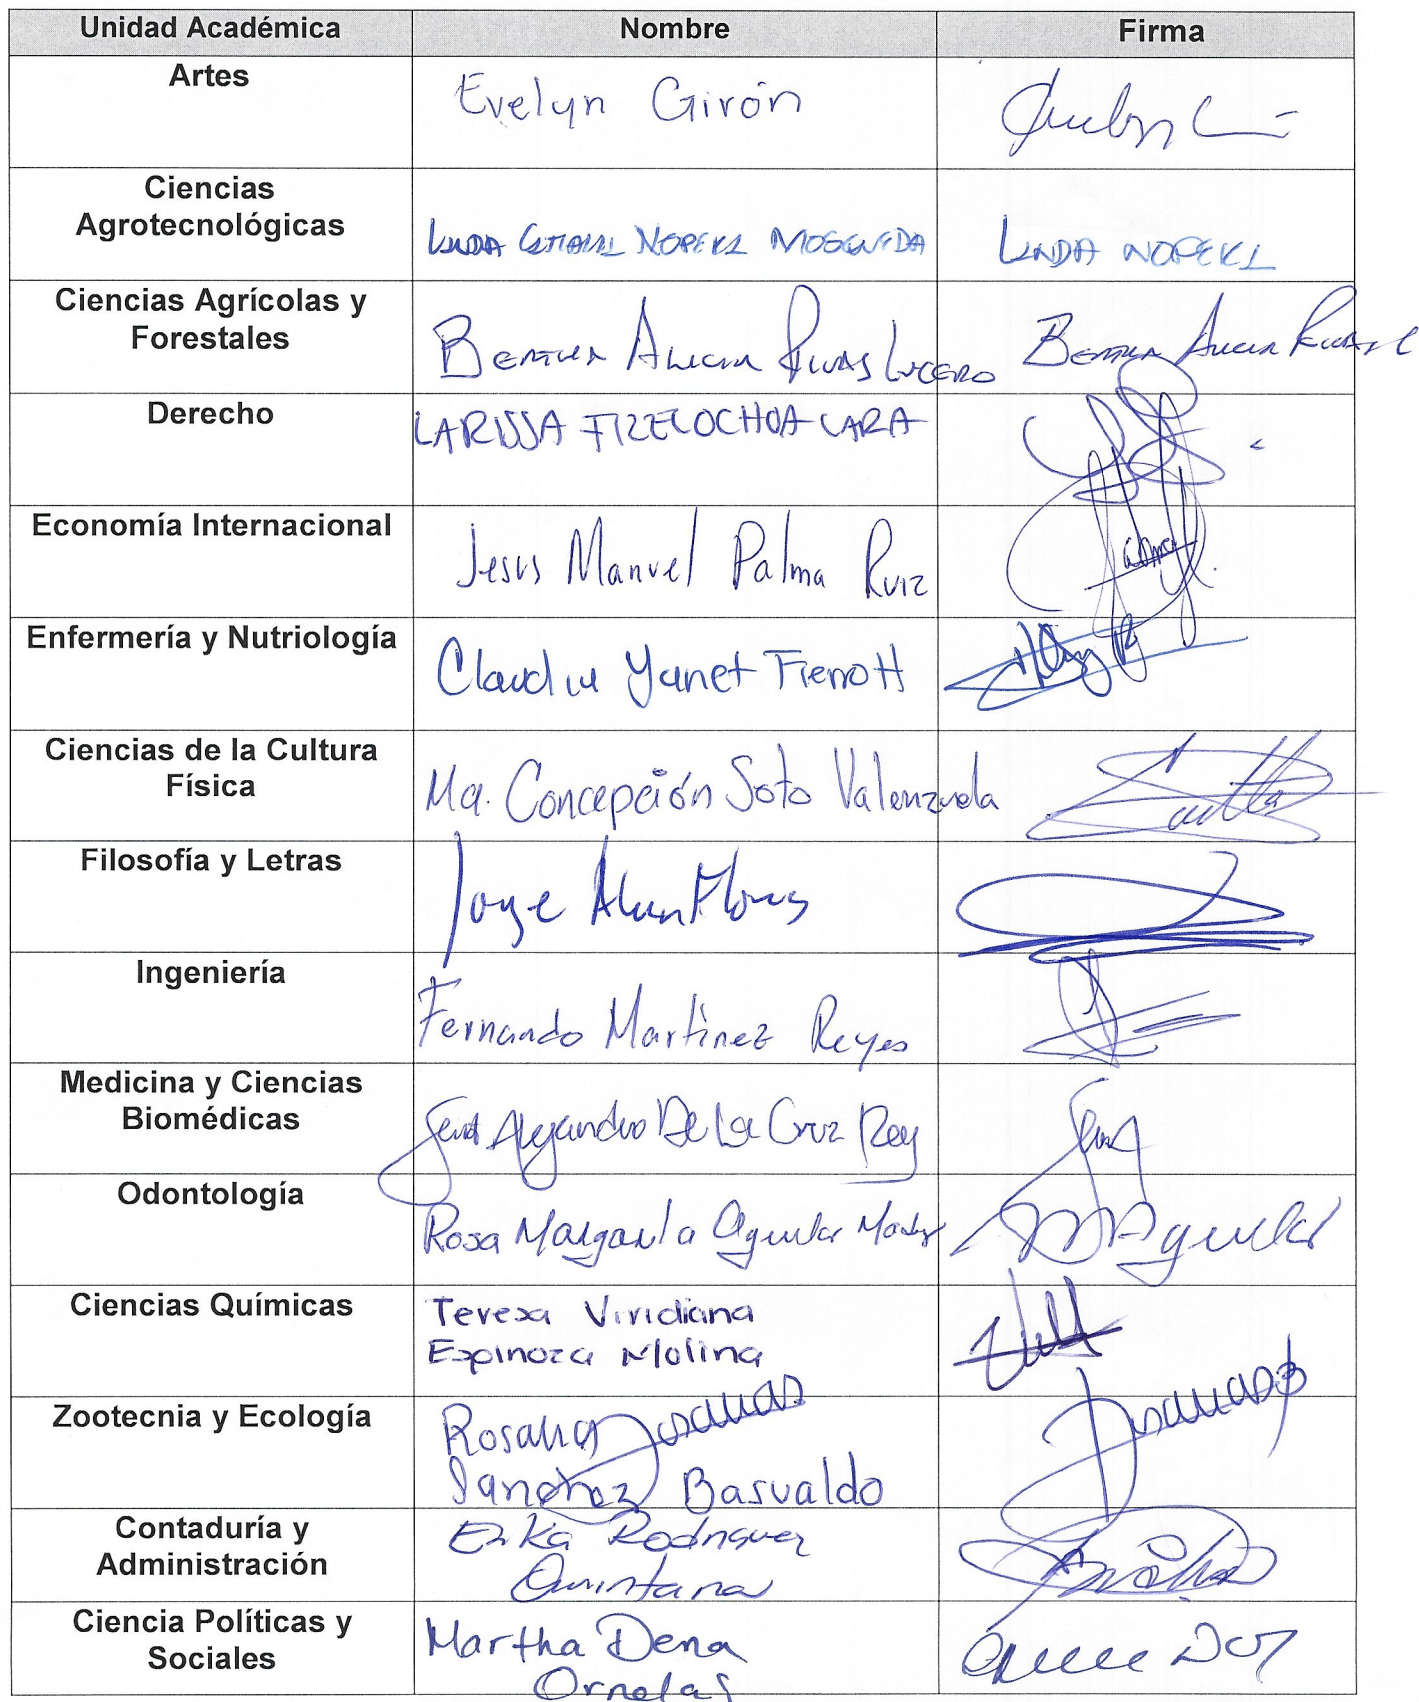 Unidad Académica Nombre Firma
Artes Evelyn Girón
Ciencias
Agrotecnológicas LINDA CITLALLI NOPERI MOSQUEDA LINDA NOPERI
Ciencias Agrícolas y
Forestales BERTHA ALICIA RIVAS LUCERO BERTHA ALICIA RIVAS L
Derecho LARISSA ITZEL OCHOA LARA
Economía Internacional Jesus Manuel Palma Ruiz
Enfermería y Nutriología Claudia Yanet Fierro H
Ciencias de la Cultura
Física Ma. Concepción Soto Valenzuela
Filosofía y Letras Jorge Alan Flores
Ingeniería Fernando Martínez Reyes
Medicina y Ciencias
Biomédicas Alejandro De La Cruz Rey
Odontología Rosa Margarita Aguilar Aguilar
Ciencias Químicas Teresa Viridiana
Espinoza Molina
Zootecnia y Ecología Rosalia
Sanchez Basualdo
Contaduría y Erika Rodriguez
Administración Quintana
Ciencia Políticas y Martha Dena
Sociales Ornelas